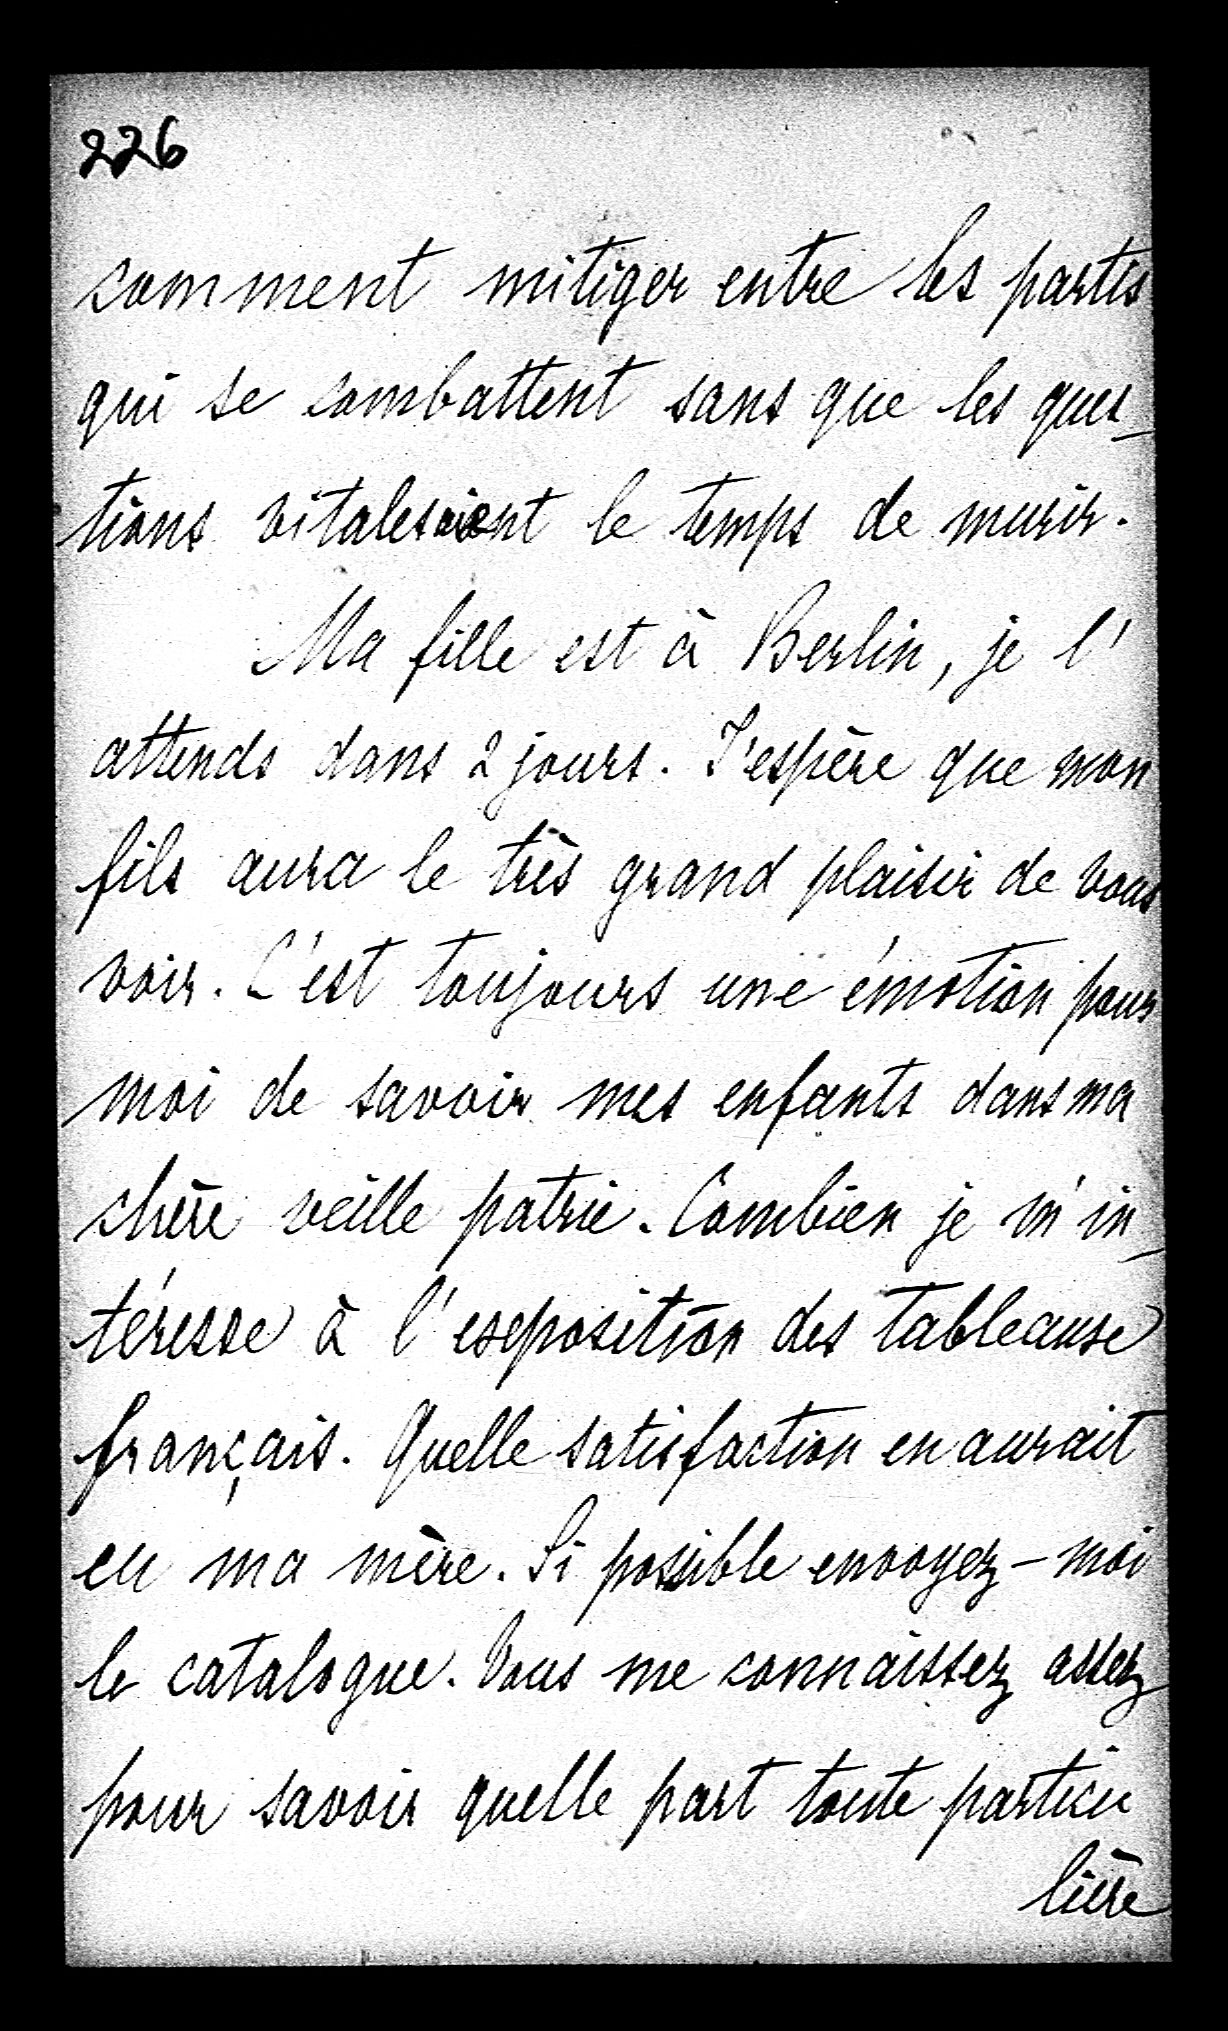 226
comment mitiger entre les partis
qui se combattent sans que les ques-
tions vitales aient le temps de murir.
Ma fille est à Berlin, je l'
attends dans 2 jours. J'espère que mon
fils aura le très grand plaisir de vous
voir. C'est toujours une émotion pour
moi de savoir mes enfants dans ma
chère veille patrie. Combien je m'in-
téresse à l'exposition des tableaux
français. Quelle satisfaction en aurait
eu ma mère. Si possible envoyez-moi
le catalogue. Vous me connaissez assez
pour savoir quelle part toute particu
lière